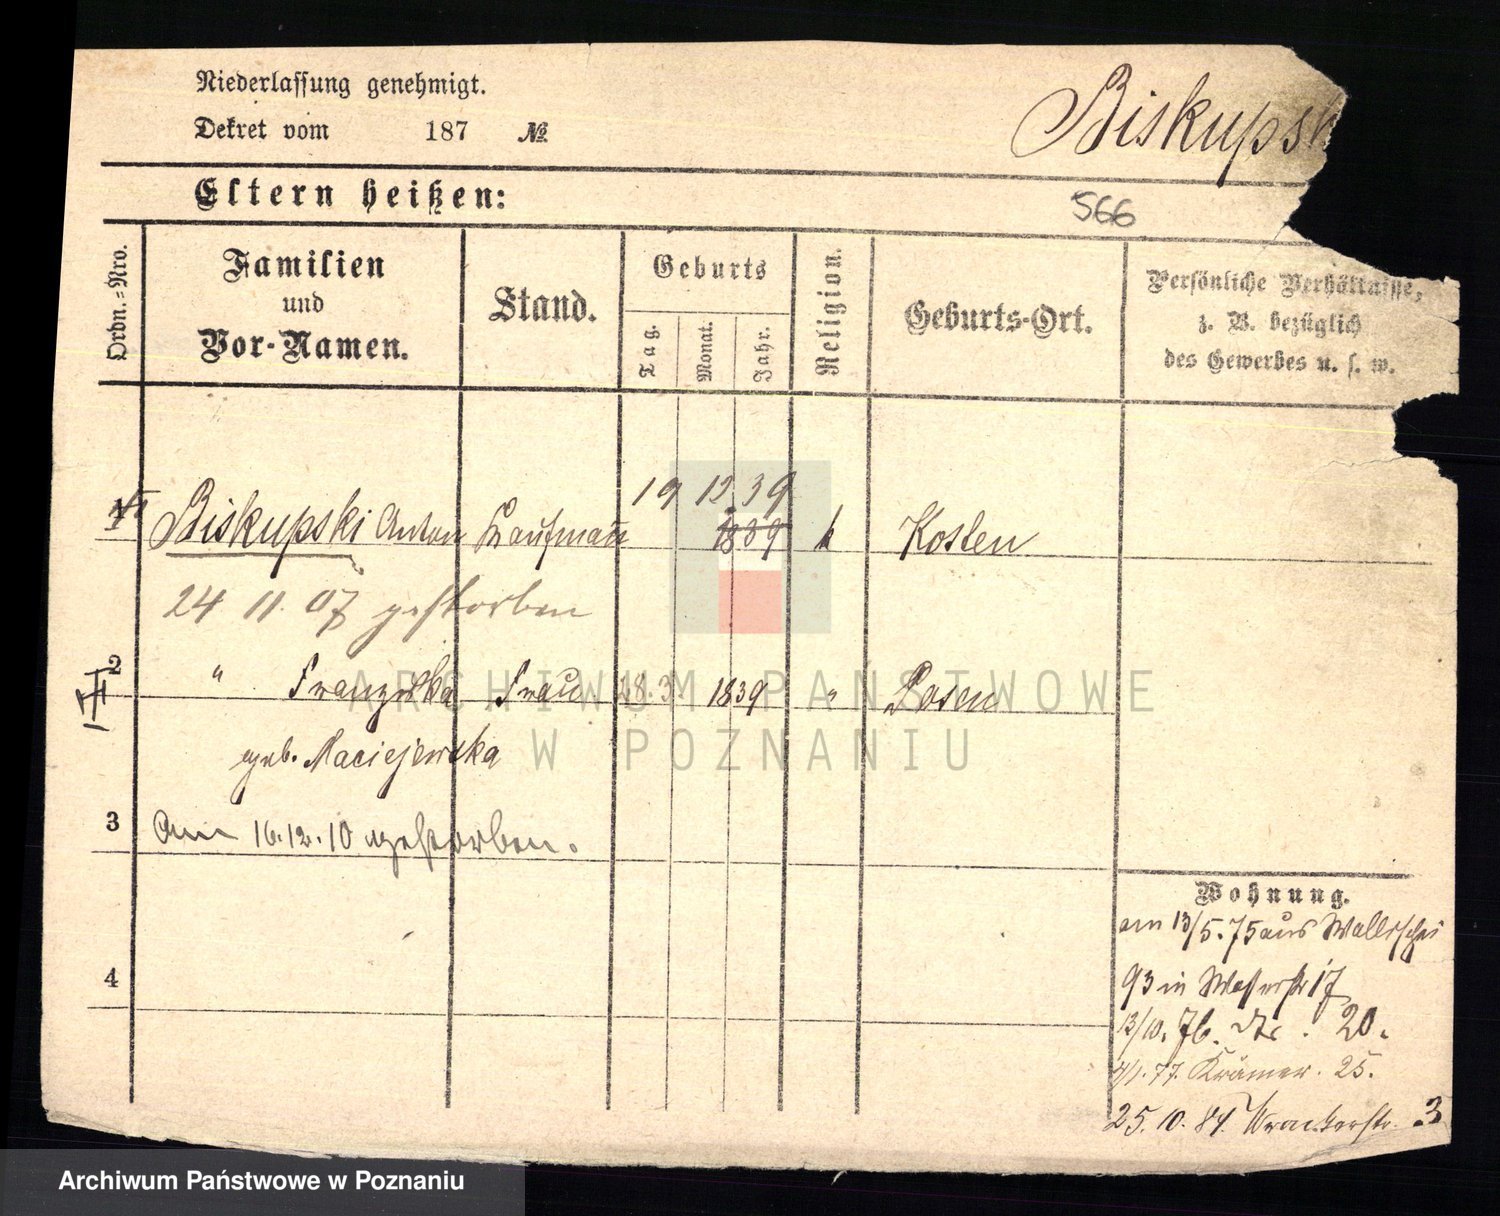 Niederlassung genehmigt.
Dekret vom 187 №
Biskupsk
Eltern heißen:
566
Ordn.=Nro.
Familien
und
Vor-Namen.
Stand.
Geburts
Tag.
Monat.
Jahr.
Religion.
Geburts-Ort.
Persönliche Verhältnisse,
z. B. bezüglich
des Gewerbes u. s. w.
19 12 39
1 Biskupski Anton Kaufmann 1839 k Kosten
24 11. 07 gestorben
2 " Franziska Frau 28. 3. 1839 " Posen
geb. Maciejewska
3 Am 16.12.10 gestorben.
4
Wohnung.
am 13/5.75 aus Wallischei
93 in Wasserstr 17
13/10. 76. 20.
77. Krämer. 25.
25. 10. 84. Wronkerstr. 3
ARCHIWUM PAŃSTWOWE
W POZNANIU
Archiwum Państwowe w Poznaniu